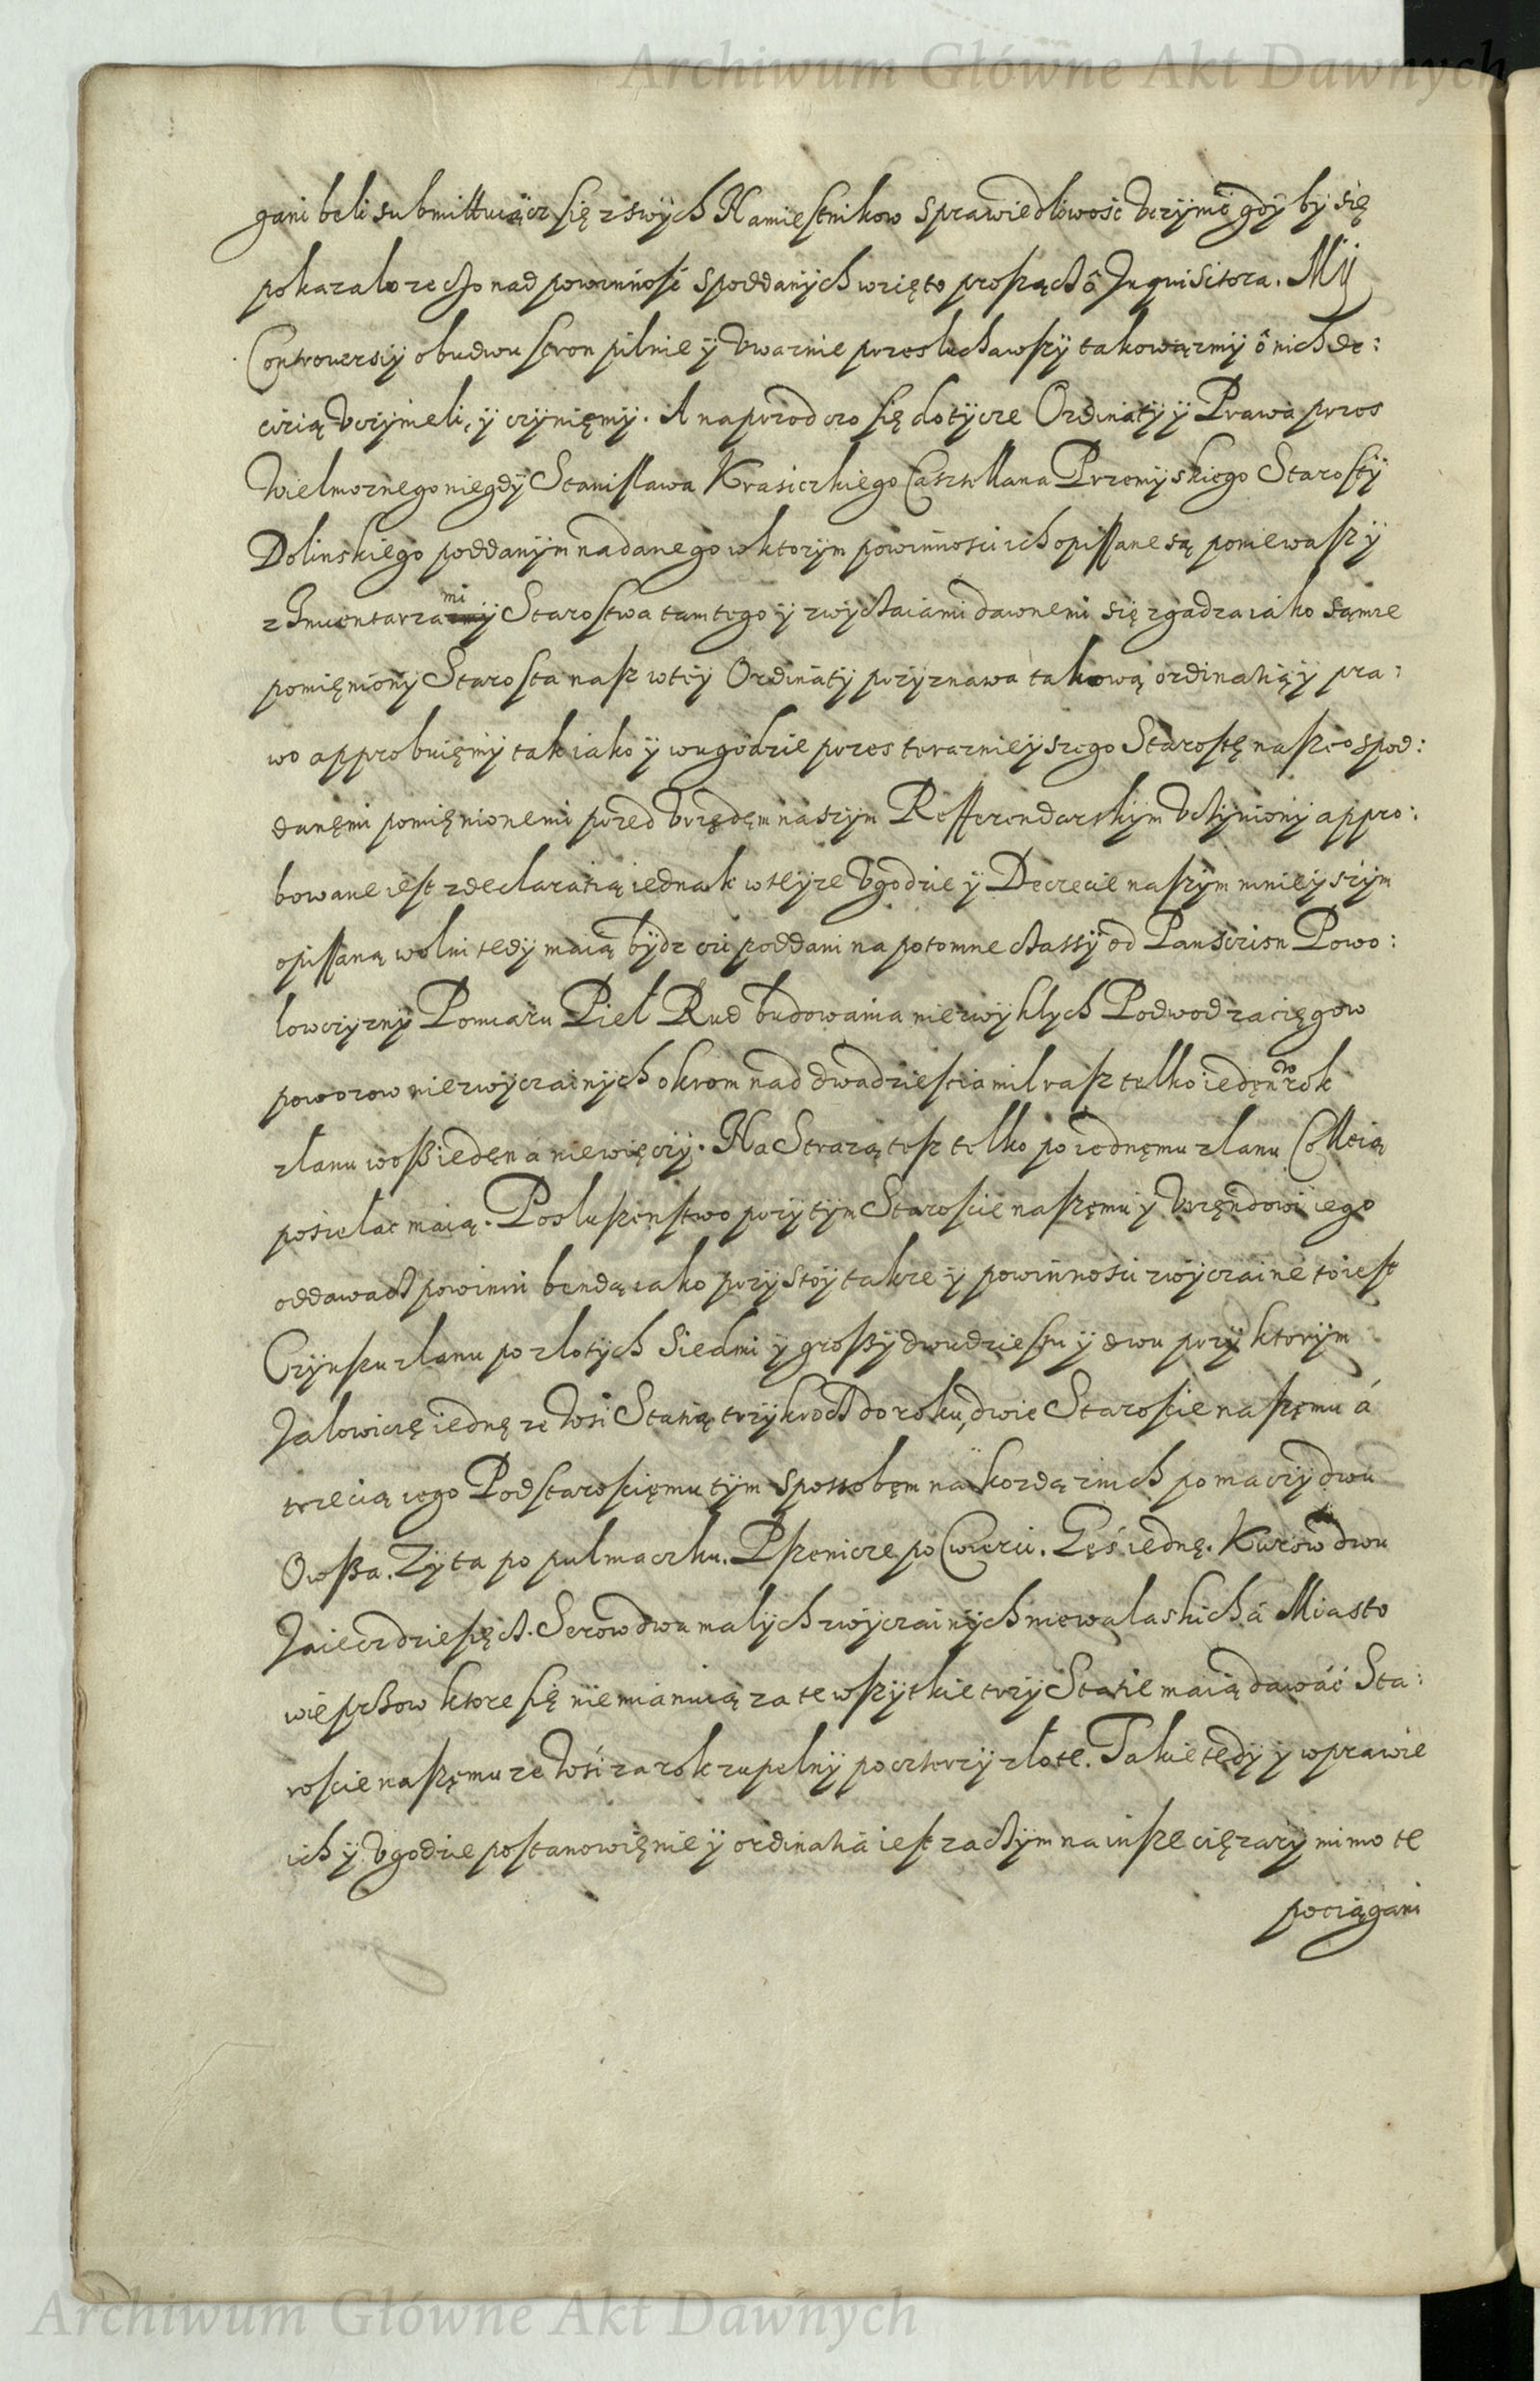 Archiwum Główne Akt Dawnych
gani beli submittuiącz się z swych Namiestnikow sprawiedlowość vczynić gdy by się
pokazało ze cżo nad powinność s poddanych wzięto proszącz ô Inquisitora. My
Controuersiy obudwu stron pilnie y vwaznie przesłuchawszy takowązmy ô nich de:
cizią vczynieli, y czyniemy. A naprzod czo się dotycze Ordinatÿ y Prawa przes
Wielmoznego niegdy Stanisława Krasiczkiego Casztellana Przemyskiego Starosty
Dolinskiego poddanym nadanego w ktorym powinnosci ich opissane są poniewasz y
z Inuentarzami Starostwa tamtego y zwyczaiami dawnemi się zgadza iako samże
pomięniony Starosta nasz w tey Ordinaty przyznawa takową ordinatią y pra:
wo approbuięmy tak iako y w ugodzie przes terazniejszego Starostę naszeo s pod:
danęmi pomięnionemi przed vrzędem naszym Refferendarskim vczyniony appro:
bowane iest z declaratią iednak w teyze vgodzie y Decrecie naszym mnieyszym
opissaną wolni tedy maią bydz czi poddani na potomne czassy od Panscizn Powo:
lowczyzny Pomiaru Piel Rud budowania niezwykłych Podwod zacięgow
powozow niezwyczainych okrom nad dwadziescia mil rasz telko iedęn w rok
z łanu wosz iedęn a niewięczy. Na Strazą tesz telko po iednęmu z lanu Collcią
posielac maią. Posluszenstwo przytym Staroscie naszęmu y Vrzęndowi iego
oddawacz powinni bendą iako przystoy takze y powinnosci zwyczaine to iest
Czynszu z lanu po złotych Siedmi y groszy dwudziestu y dwu przy ktorym
Jalowiczę iednę ze wsi Stacią trzykrocz do roku, dwie Staroscie naszęmu á
trzecią iego Podstarosciemu tym sposobęm na kozdą z nich po maczy dwu
Owsza. Zyta po pulmaczku. Pszenicze po Cwierci. Gęś iednę. Kurow dwu
Jaiecz dziesięcz. Serow dwu malych zwyczainych niewałaskich á Miasto
wieprzow ktore się nie mianuią za te wszytkie trzy Stacie maią dawáć Sta:
roscie naszęmu ze wsi za rok zupelny po cztery złote. Takie tedy y w prawie
ich y vgodzie postanowięnie y ordinatiá iest zaczym na insze cięzary mimo te
pociągani
Archiwum Główne Akt Dawnych